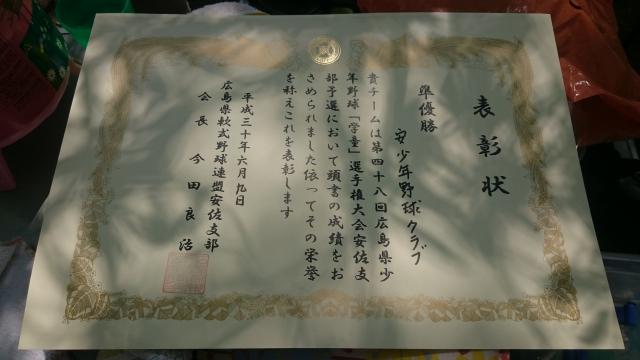 表彰状
準優勝
安少年野球クラブ
貴チームは第四十八回広島県少
年野球「学童」選手権大会安佐支
部予選において頭書の成績をお
さめられました依ってその栄誉
を称えこれを表彰します
平成三十年六月九日
広島県軟式野球連盟安佐支部
会長 今田良治